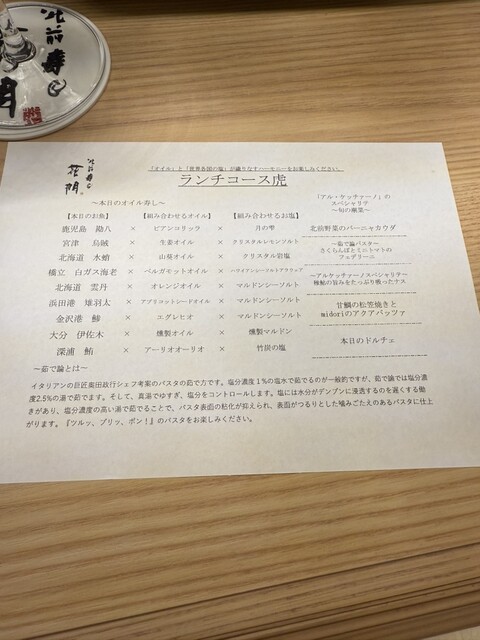 北前
寿し
北前寿し
花門
「オイル」と「世界各国の塩」が織りなすハーモニーをお楽しみください。
ランチコース虎
～本日のオイル寿し～
【本日のお魚】 【組み合わせるオイル】 【組み合わせるお塩】
鹿児島 勘八 × ビアンコリッツ × 月の雫
宮津 烏賊 × 生姜オイル × クリスタルレモンソルト
北海道 水蛸 × 山葵オイル × クリスタル岩塩
橋立 白ガス海老 × ベルガモットオイル ×
北海道 雲丹 × オレンジオイル × マルドンシーソルト
浜田港 雄羽太 × アプリコットシードオイル × マルドンシーソルト
金沢港 鯵 × エグレヒオ × マルドンシーソルト
大分 伊佐木 × 燻製オイル × 燻製マルドン
深浦 鮪 × アーリオオーリオ × 竹炭の塩
「アル・ケッチァーノ」の
スペシャリテ
～旬の潮菜～
北前野菜のバーニャカウダ
～茹で論パスタ～
さくらんぼとミニトマトの
フェデリーニ
～アルケッチァーノスペシャリテ～
鮑の旨みをたっぷり吸ったナス
甘鯛の松笠焼きと
midoriのアクアパッツァ
本日のドルチェ
～茹で論とは～
イタリアンの巨匠奥田政行シェフ考案のパスタの茹で方です。塩分濃度１％の塩水で茹でるのが一般的ですが、茹で論では塩分濃
度2.5％の湯で茹でます。そして、真湯でゆすぎ、塩分をコントロールします。塩には水分がデンプンに浸透するのを遅くする働
きがあり、塩分濃度の高い湯で茹でることで、パスタ表面の粘化が抑えられ、表面がつるりとした噛みごたえのあるパスタに仕上
がります。『ツルッ、プリッ、ポン！』のパスタをお楽しみください。